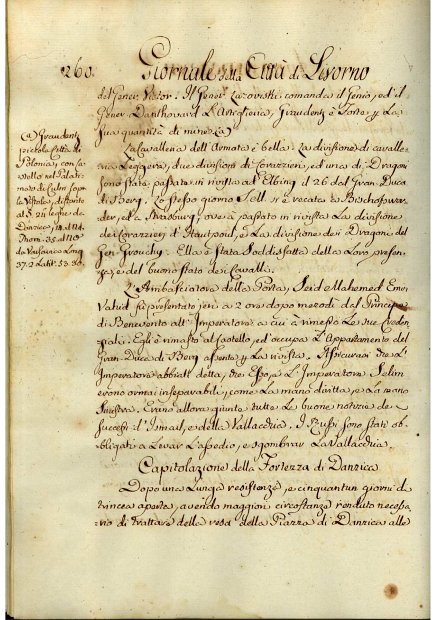 260.
Giornale della Città di Livorno
del Gener. Victor. Il Gener. Lazowski comanda il Genio, ed il
Gener. Danthovard L'Artiglieria, Graudentz è Forte, e La
Sua quantità di
La Cavalleria dell'Armata è bella. La divisione di cavalle-
ria Leggera, due divisioni di Corazzieri, ed una di Dragoni
Sono State passate in rivista ad Elbing il 26 dal Gran-Duca
di Berg. Lo Stesso giorno S.M. si è recata a Bischoffswer-
der, ed a Strasburg, ove à passato in rivista La divisione
dei Corazzieri d'Hautpoul, e La divisione dei Dragoni del
Gen. Grouchy. Ella è Stata Soddisfatta della Loro presen-
za, e del buono Stato dei Cavalli.
L'Ambasciatore della Porta, Seid Mahemed Eme
Vahid fu presentato jeri a 2 ore dopo mezzodì dal Principe
di Benevento all'Imperatore a cui à rimesso Le sue Creden-
ziali. Egli è rimasto al Castello, ed occupa L'Appartamento del
Gran-Duca di Berg assente per La rivista. Assicurasi che L'
Imperatore abbiali detto, che Esso, e L'Imperatore Selim
erono ormai inseparabili, come La mano diritta, e La mano
Sinistra. Erano allora giunte tutte Le buone notizie de'
Successi d'Ismail, e della Vallacchia. I Russi sono Stati ob-
bligati a Levar L'assedio, e sgombrar La Vallacchia.
Capitolazione della Fortezza di Danzica
Dopo una Lunga resistenza, e cinquantun giorni di
trincea aperta, avendo maggiori circostanze renduto necessa-
rio di trattare della resa della Piazza di Danzica alle
(a) Graudentz
piccola Città di
Polonia, con ca-
stello nel Palati-
nato di Culm sopra
La Vistola, distante
al S. 21 leghe da
Danzica, 14 al
Thorn. 35 al
da Varsavia Long.
37. 2 Latit. 53. 30.